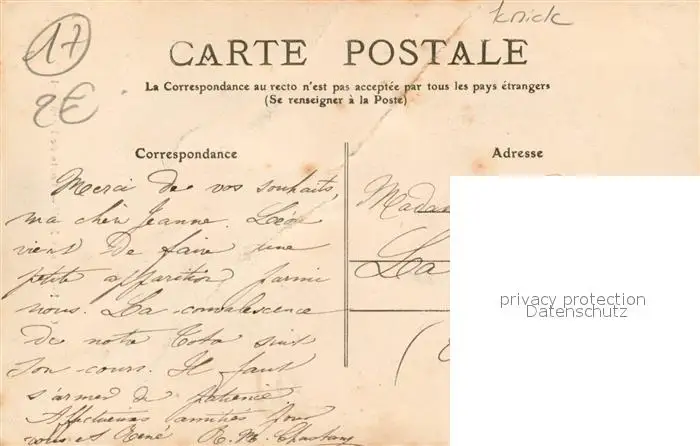 17
knick
2€
CARTE POSTALE
La Correspondance au recto n'est pas acceptée par tous les pays étrangers
(Se renseigner à la Poste)
Correspondance
Merci de vos souhaits,
ma chère Jeanne. Léo
vient de faire une
petite apparition parmi
nous. La convalescence
de notre Tota suit
son cours. Il faut
s'armer de patience
Affectueuses amitiés pour
vous et René
Adresse
Mada
La
privacy protection
Datenschutz